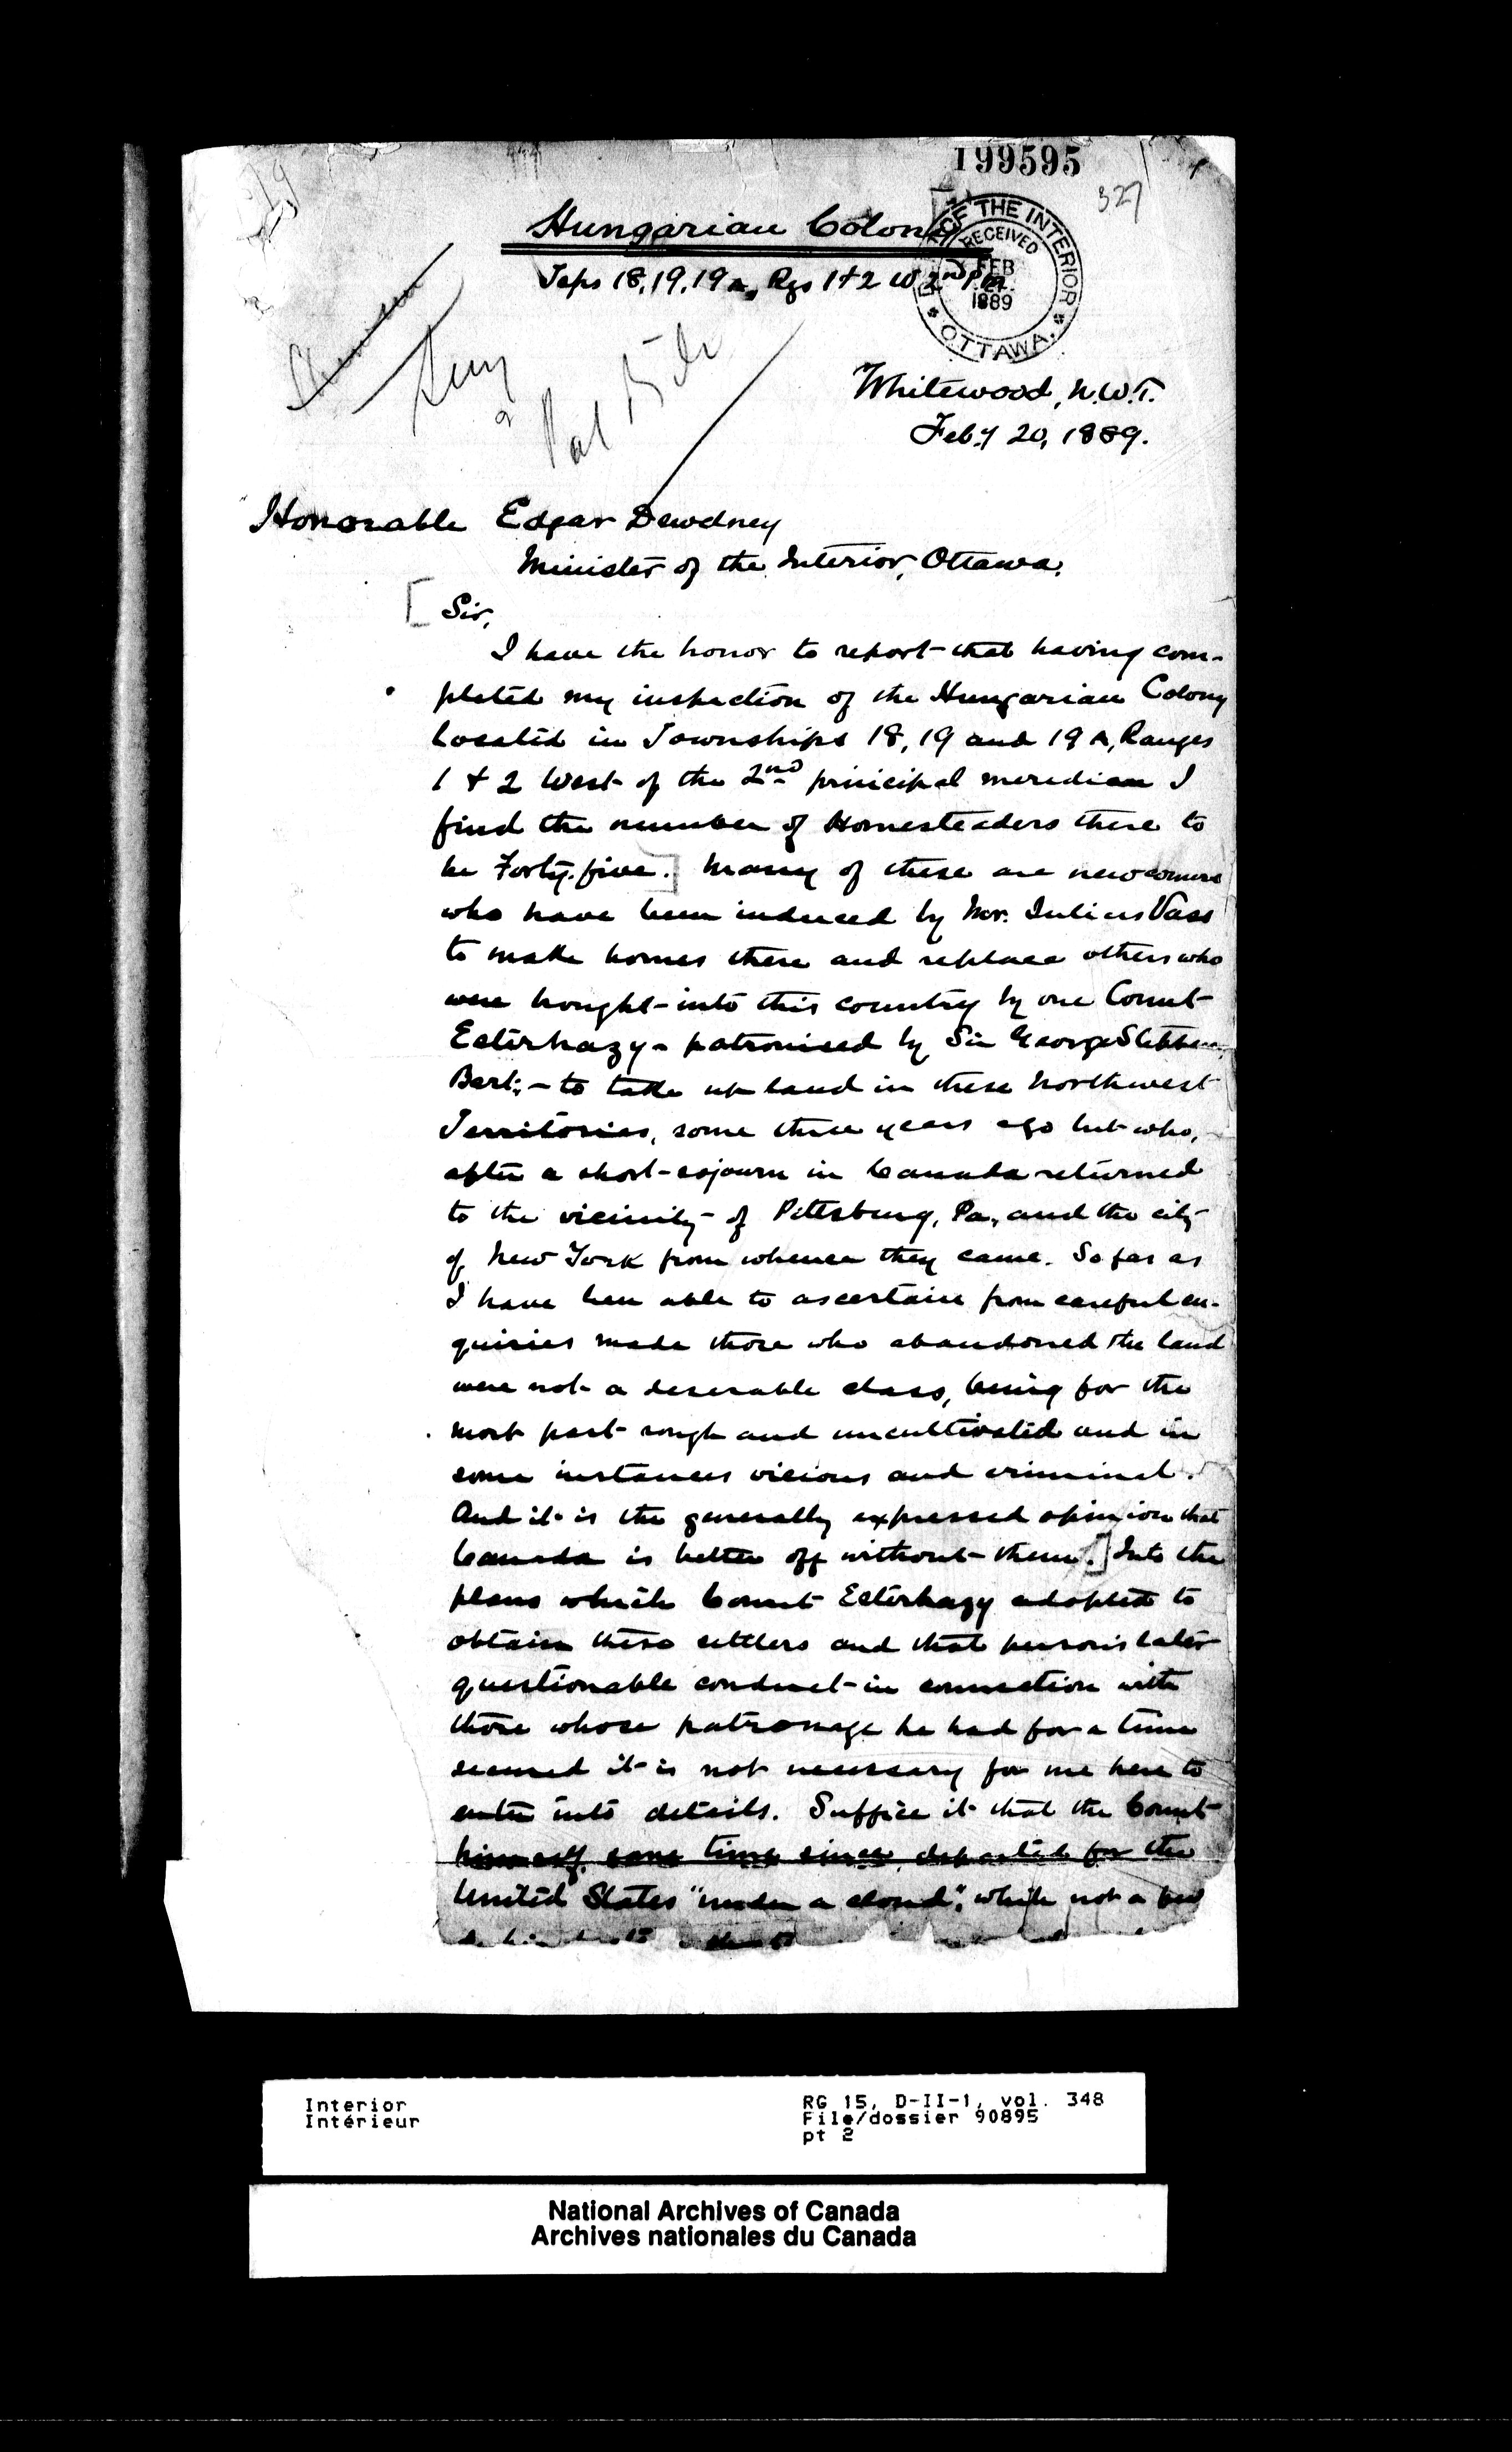 199595
327
Hungarian Colony
Tsps 18, 19, 19A, Rgs 1 & 2 W 2nd P.M.
DEPT. OF THE INTERIOR
RECEIVED
FEB
1889
OTTAWA.
Whitewood, N.W.T.
Feb.y 20, 1889.
Honorable Edgar Dewdney
Minister of the Interior, Ottawa.
[Sir,
I have the honor to report that having com-
pleted my inspection of the Hungarian Colony
located in Townships 18, 19 and 19A, Ranges
1 & 2 West of the 2nd principal meridian I
find the number of Homesteaders there to
be Forty-five.] Many of these are newcomers
who have been induced by Mr. Julius Vass
to make homes there and replace others who
were brought into this country by one Count
Esterhazy - patronised by Sir George Stephen,
Bart; - to take up land in these Northwest
Territories, some three years ago but who,
after a short sojourn in Canada returned
to the vicinity of Pittsburg, Pa., and the city
of New York from whence they came. So far as
I have been able to ascertain from careful en-
quiries made those who abandoned the land
were not a deserable class, being for the
most part rough and uncultivated and in
some instances vicious and criminal.
And it is the generally expressed opinion that
Canada is better off without them.] Into the
plans which Count Esterhazy adopted to
obtain these settlers and that person's later
questionable conduct in connection with
those whose patronage he had for a time
secured it is not necessary for me here to
enter into details. Suffice it that the Count
himself, some time since, departed for the
United States "under a cloud", while not a few
Interior
Intérieur
RG 15, D-II-1, vol. 348
File/dossier 90895
pt 2
National Archives of Canada
Archives nationales du Canada